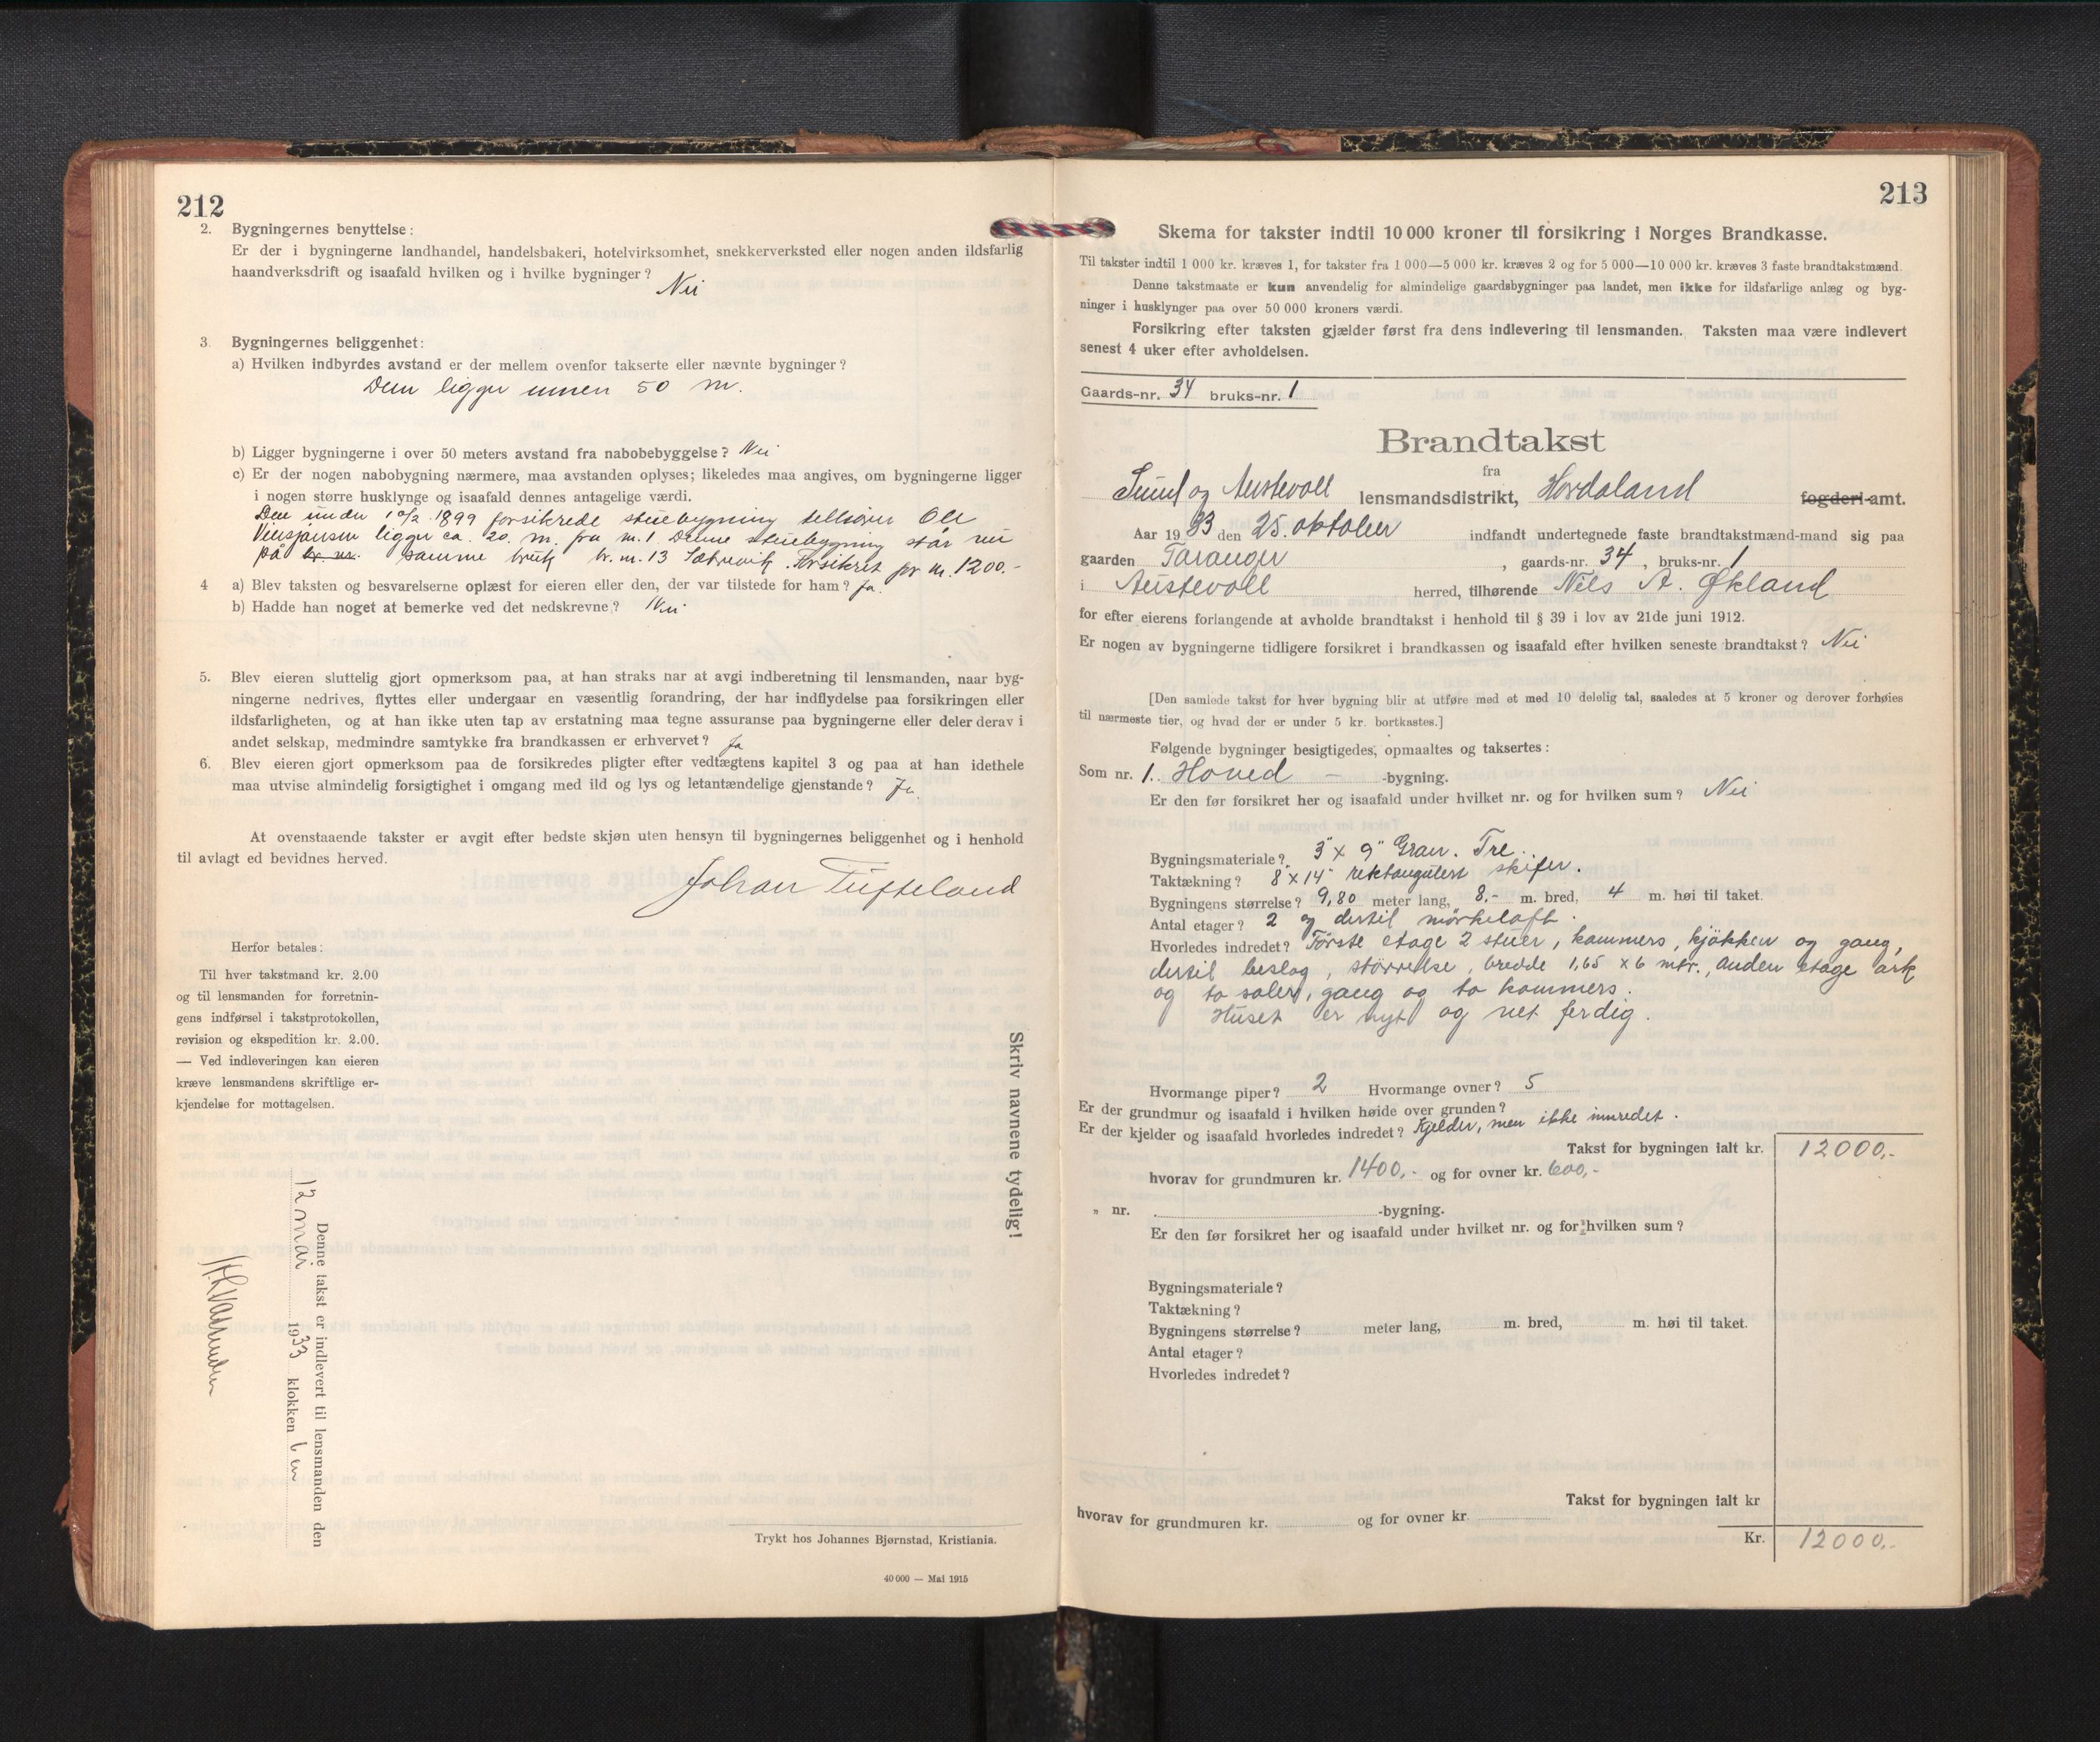 212
2. Bygningernes benyttelse:
Er der i bygningerne landhandel, handelsbakeri, hotelvirksomhet, snekkerverksted eller nogen anden ildsfarlig
haandverksdrift og isaafald hvilken og i hvilke bygninger?
Nei
3. Bygningernes beliggenhet:
a) Hvilken indbyrdes avstand er der mellem ovenfor takserte eller nævnte bygninger?
Dem ligger innen 50 m.
b) Ligger bygningerne i over 50 meters avstand fra nabobebyggelse? Nei
c) Er der nogen nabobygning nærmere, maa avstanden oplyses; likeledes maa angives, om bygningerne ligger
i nogen større husklynge og isaafald dennes antagelige værdi.
Den under 10/2 1899 forsikrede stuebygning tilhører Ole
ligger ca. 20. m. fra nr. 1 Denne stuebygning står nu
på br. nr. samme bruk br. nr. 13 Sætrevik. Forsikret for kr. 1200.-
4 a) Blev taksten og besvarelserne oplæst for eieren eller den, der var tilstede for ham? Ja.
b) Hadde han noget at bemerke ved det nedskrevne? Nei
5. Blev eieren sluttelig gjort opmerksom paa, at han straks har at avgi indberetning til lensmanden, naar byg-
ningerne nedrives, flyttes eller undergaar en væsentlig forandring, der har indflydelse paa forsikringen eller
ildsfarligheten, og at han ikke uten tap av erstatning maa tegne assuranse paa bygningerne eller deler derav i
andet selskap, medmindre samtykke fra brandkassen er erhvervet? Ja
6. Blev eieren gjort opmerksom paa de forsikredes pligter efter vedtægtens kapitel 3 og paa at han idethele
maa utvise almindelig forsigtighet i omgang med ild og lys og letantændelige gjenstande? Ja
At ovenstaaende takster er avgit efter bedste skjøn uten hensyn til bygningernes beliggenhet og i henhold
til avlagt ed bevidnes herved.
Johan Tufteland
Herfor betales:
Til hver takstmand kr. 2.00
og til lensmanden for forretnin-
gens indførsel i takstprotokollen,
revision og ekspedition kr. 2.00.
— Ved indleveringen kan eieren
kræve lensmandens skriftlige er-
kjendelse for mottagelsen.
Skriv navnene tydelig!
Denne takst er indlevert til lensmanden den
12 mai 1933 klokken 6 em
Trykt hos Johannes Bjørnstad, Kristiania.
40 000 — Mai 1915
213
Skema for takster indtil 10 000 kroner til forsikring i Norges Brandkasse.
Til takster indtil 1 000 kr. kræves 1, for takster fra 1 000—5 000 kr. kræves 2 og for 5 000—10 000 kr. kræves 3 faste brandtakstmænd.
Denne takstmaate er kun anvendelig for almindelige gaardsbygninger paa landet, men ikke for ildsfarlige anlæg og byg-
ninger i husklynger paa over 50 000 kroners værdi.
Forsikring efter taksten gjælder først fra dens indlevering til lensmanden. Taksten maa være indlevert
senest 4 uker efter avholdelsen.
Gaards-nr. 34 bruks-nr. 1
Brandtakst
fra
Sund og Austevoll lensmandsdistrikt, Hordaland fogderi-amt.
Aar 1933 den 25. oktober indfandt undertegnede faste brandtakstmænd-mand sig paa
gaarden Taranger, gaards-nr. 34, bruks-nr. 1
i Austevoll herred, tilhørende Nils A. Økland
for efter eierens forlangende at avholde brandtakst i henhold til § 39 i lov av 21de juni 1912.
Er nogen av bygningerne tidligere forsikret i brandkassen og isaafald efter hvilken seneste brandtakst? Nei
[Den samlede takst for hver bygning blir at utføre med et med 10 delelig tal, saaledes at 5 kroner og derover forhøies
til nærmeste tier, og hvad der er under 5 kr. bortkastes.]
Følgende bygninger besigtigedes, opmaaltes og taksertes:
Som nr. 1. Hoved - -bygning.
Er den før forsikret her og isaafald under hvilket nr. og for hvilken sum? Nei
Bygningsmateriale? 3" x 9" Gran. Tre.
Taktækning? 8 x 14" rektangulert skifer.
Bygningens størrelse? 9,80 meter lang, 8,- m. bred, 4 m. høi til taket.
Antal etager? 2 og dertil mörkeloft.
Hvorledes indredet? Förste etage 2 stuer, kammers, kjökken og gang,
dertil beslag, störrelse, bredde 1,65 x 6 mtr., anden etage ark
og to saler, gang og to kammers.
Huset er nyt og net ferdig.
Hvormange piper? 2 Hvormange ovner? 5
Er der grundmur og isaafald i hvilken høide over grunden?
Er der kjelder og isaafald hvorledes indredet? Kjelder, men ikke innredet.
Takst for bygningen ialt kr. 12000,-
hvorav for grundmuren kr. 1400,- og for ovner kr. 600,-
„ nr. -bygning.
Er den før forsikret her og isaafald under hvilket nr. og for hvilken sum?
Bygningsmateriale?
Taktækning?
Bygningens størrelse? meter lang, m. bred, m. høi til taket.
Antal etager?
Hvorledes indredet?
Takst for bygningen ialt kr
hvorav for grundmuren kr. og for ovner kr.
Kr. 12000,-